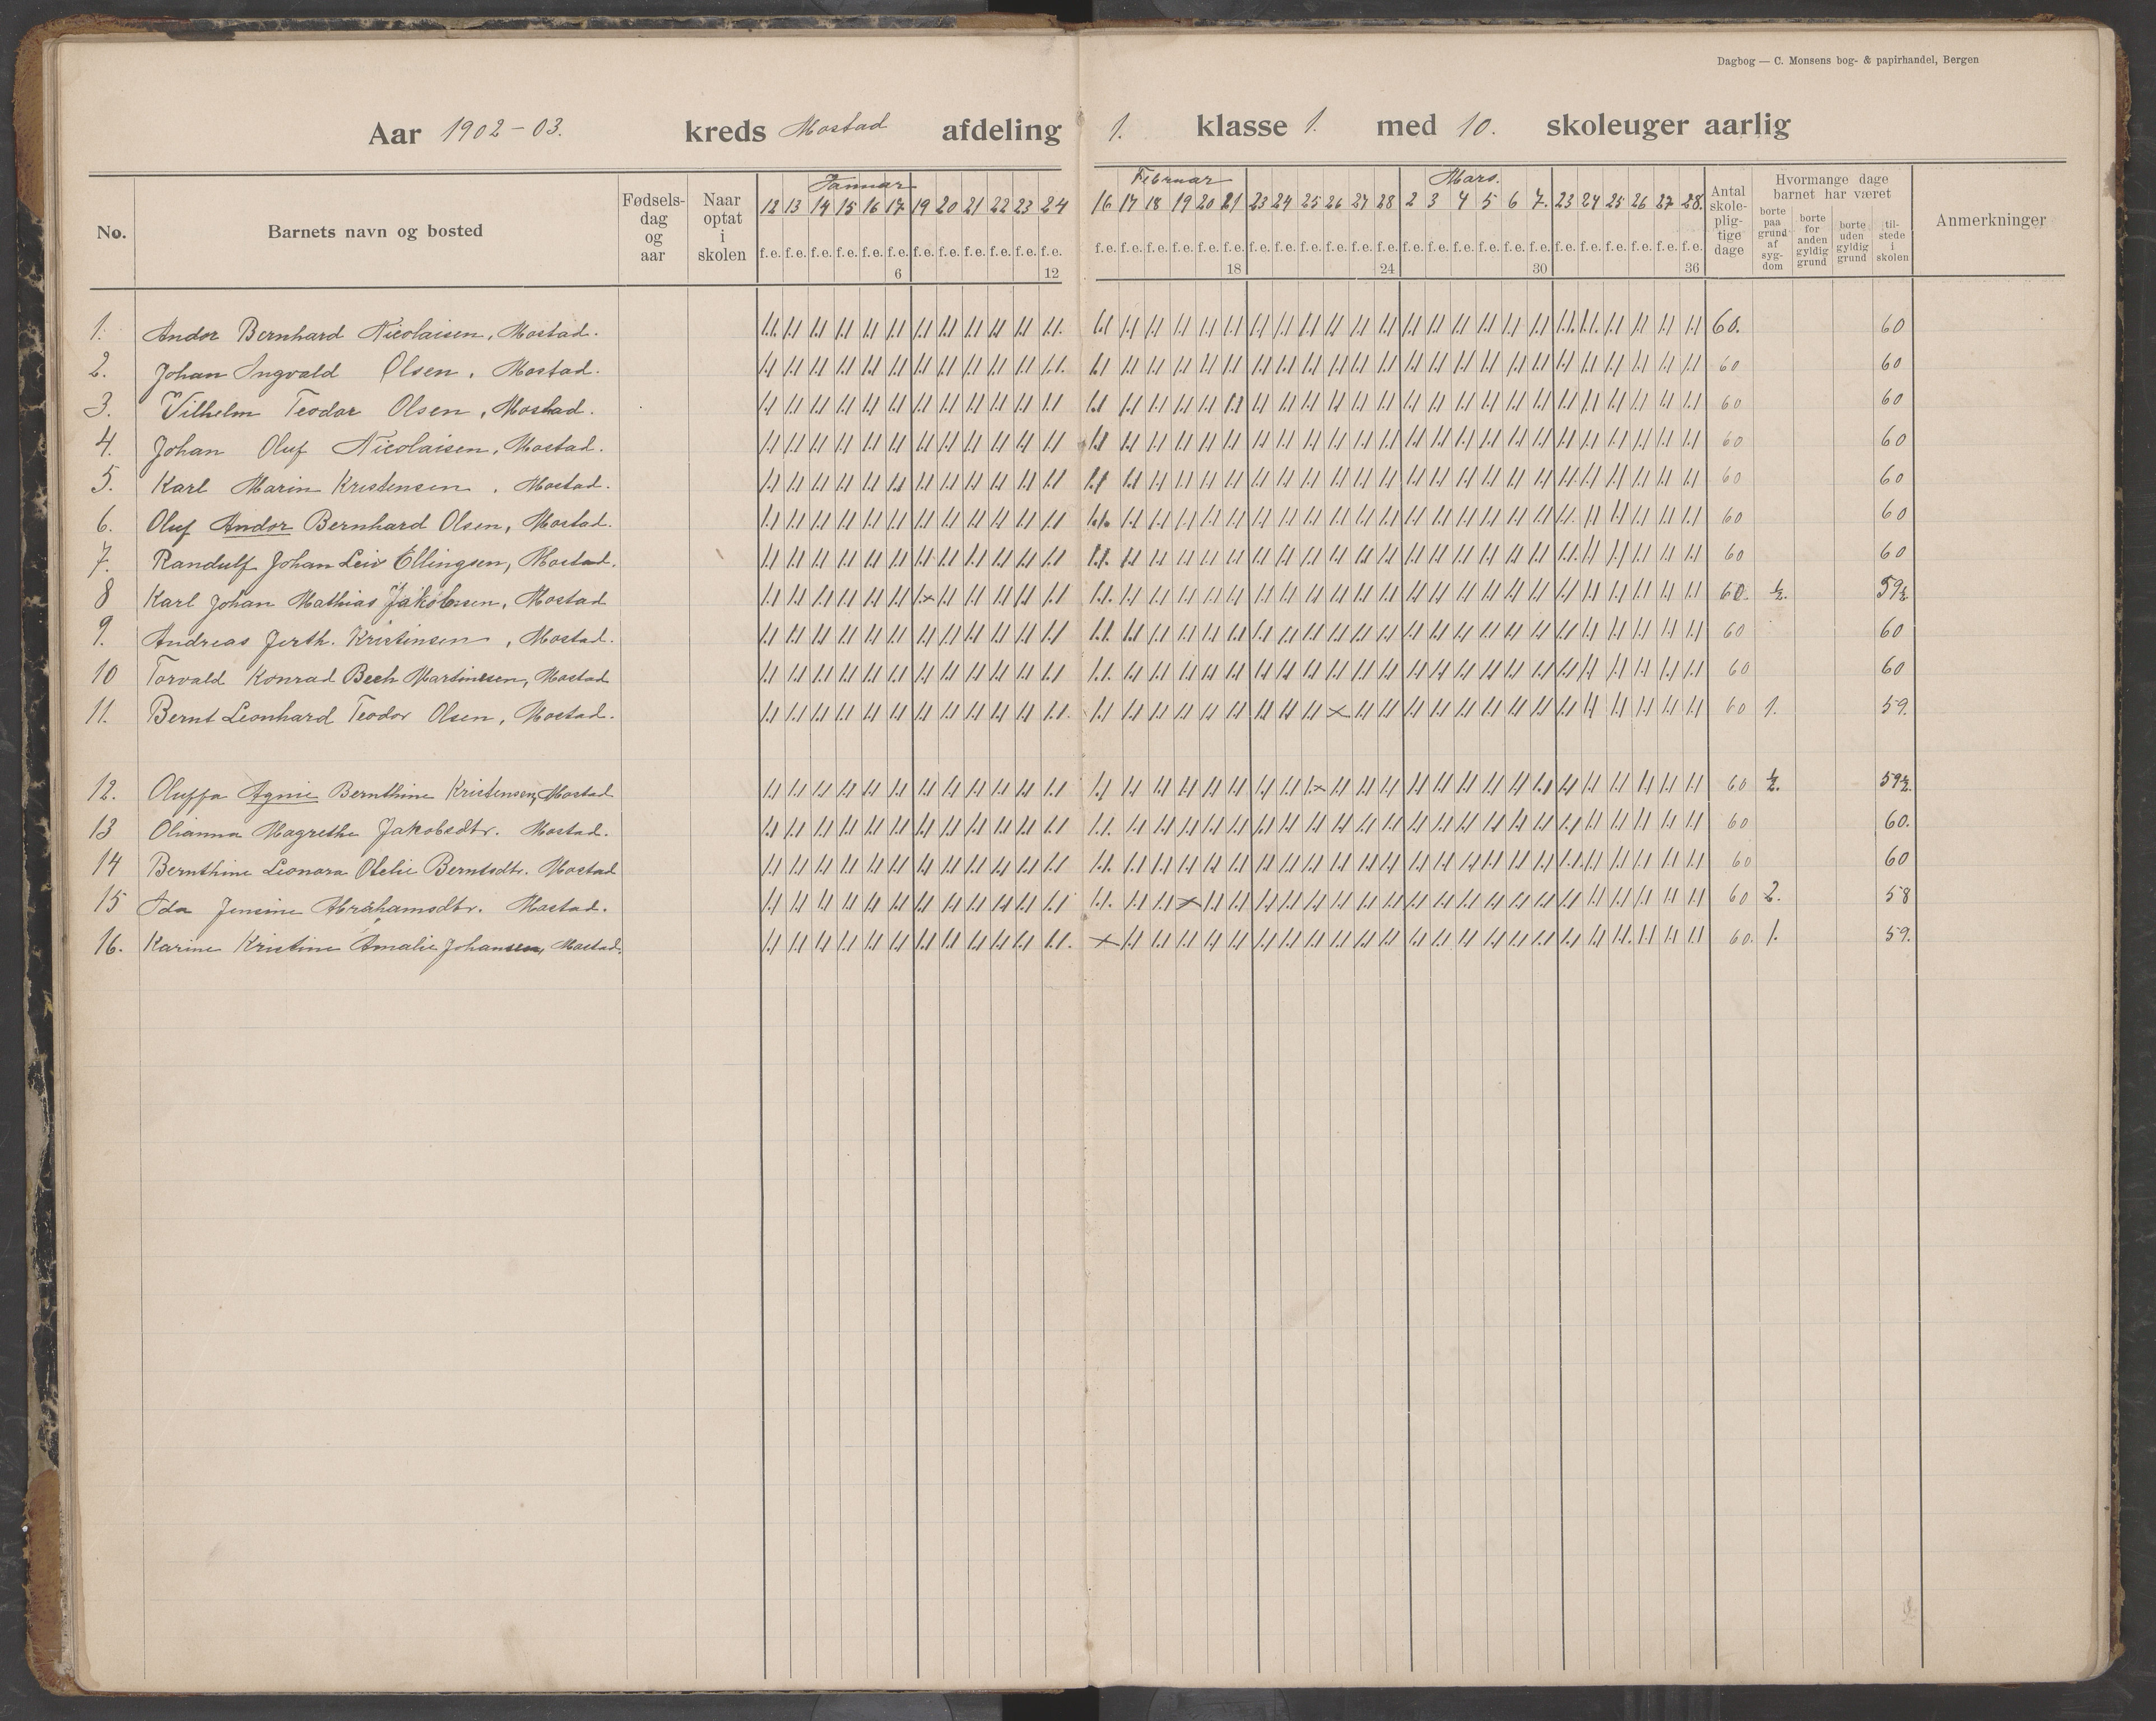 Dagbog — C. Monsens bog- & papirhandel, Bergen
Aar 1902-03. kreds Mostad afdeling 1. klasse 1. med 10. skoleuger aarlig
No. Barnets navn og bosted Fødsels-dag og aar Naar optat i skolen Januar Februar Mars. Antal skole-plig-tige dage Hvormange dage barnet har været Anmerkninger
borte paa grund af syg-dom borte for anden gyldig grund borte uden gyldig grund til-stede i skolen
12 13 14 15 16 17 19 20 21 22 23 24 16 17 18 19 20 21 23 24 25 26 27 28 2 3 4 5 6 7. 23 24 25 26 27 28.
f. e. f. e. f. e. f. e. f. e. f. e. f. e. f. e. f. e. f. e. f. e. f. e. f. e. f. e. f. e. f. e. f. e. f. e. f. e. f. e. f. e. f. e. f. e. f. e. f. e. f. e. f. e. f. e. f. e. f. e. f. e. f. e. f. e. f. e. f. e. f. e.
6 12 18 24 30 36
1. Andor Bernhard Nicolaisen, Mostad. 60. 60
2. Johan Ingvald Olsen, Mostad. 60 60
3. Vilhelm Teodor Olsen, Mostad. 60 60
4. Johan Oluf Nicolaisen, Mostad. 60 60
5. Karl Marin Kristensen, Mostad. 60 60
6. Oluf Andor Bernhard Olsen, Mostad. 60 60
7. Randulf Johan Leiv Ellingsen, Mostad. 60 60
8 Karl Johan Mathias Jakobsen, Mostad 60. ½. 59½
9. Andreas Jerth. Kristensen, Mostad. 60 60
10 Torvald Konrad Bech Martinesen, Mostad 60 60
11. Bernt Leonhard Teodor Olsen, Mostad. 60 1. 59.
12. Oluffa Agnie Bernthine Kristensen, Mostad 60 ½. 59½
13 Olianna Magrethe Jakobsdtr. Mostad. 60 60.
14 Bernthine Leonora Otelie Berntsdtr. Mostad 60 60
15 Ida Jensine Abrahamsdtr. Mostad. 60 2. 58
16. Karine Kristine Amalie Johansen, Mostad. 60. 1. 59.